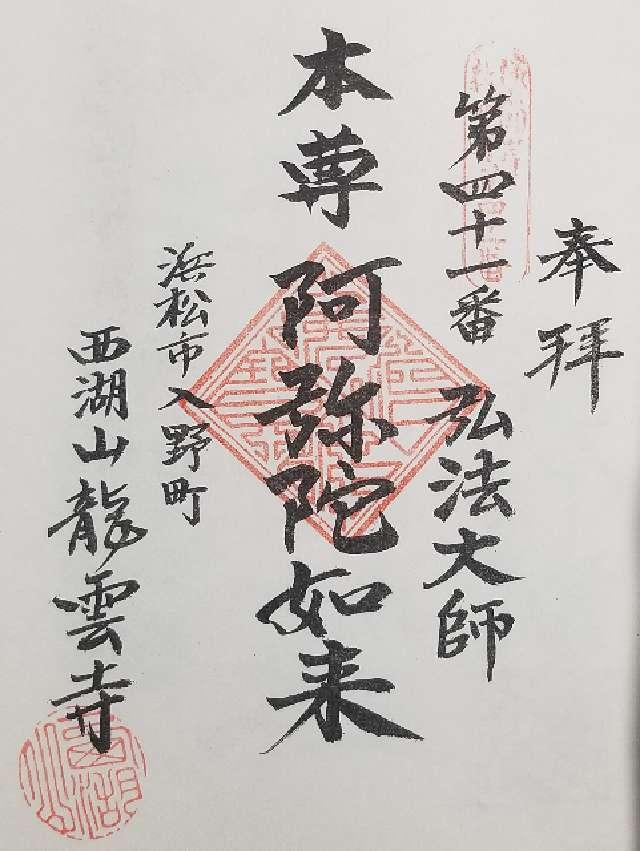 奉拝
第四十一番 弘法大師
本尊 阿弥陀如来
浜松市入野町
西湖山龍雲寺